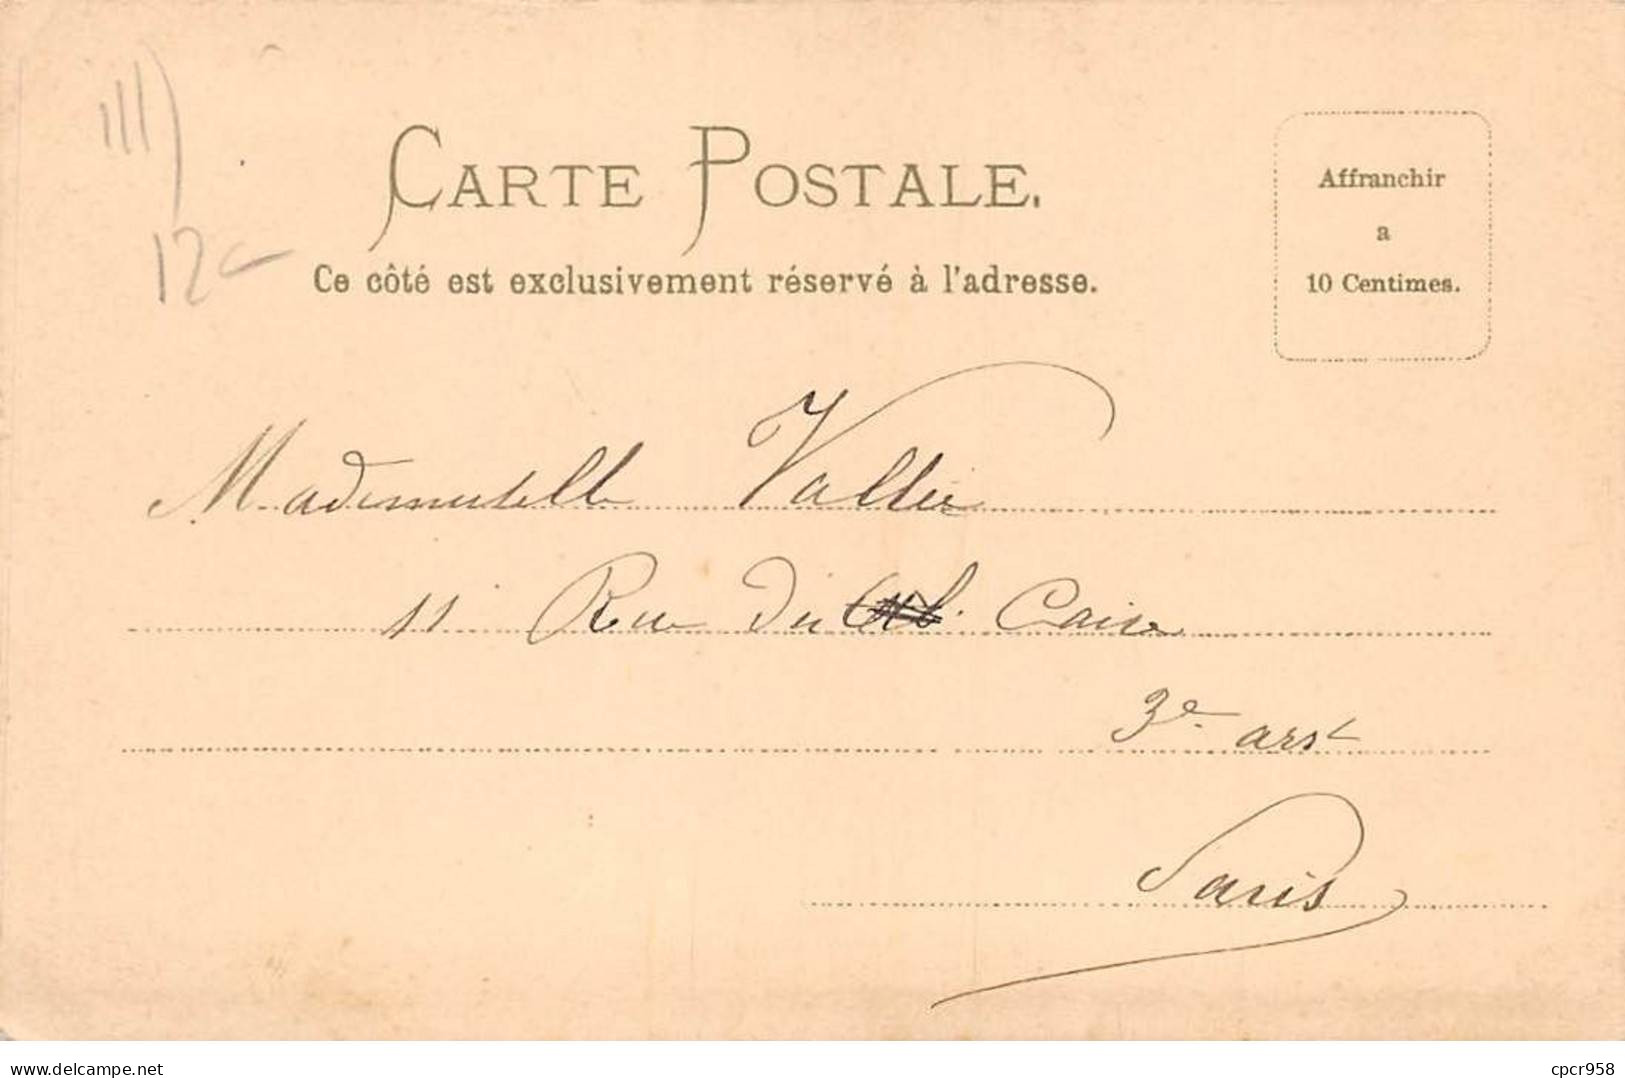 CARTE POSTALE.
Ce côté est exclusivement réservé à l'adresse.
Affranchir
a
10 Centimes.
Mademoiselle Vallier
11 Rue du Caire
3e arst
Paris
www.delcampe.net
cpcr958